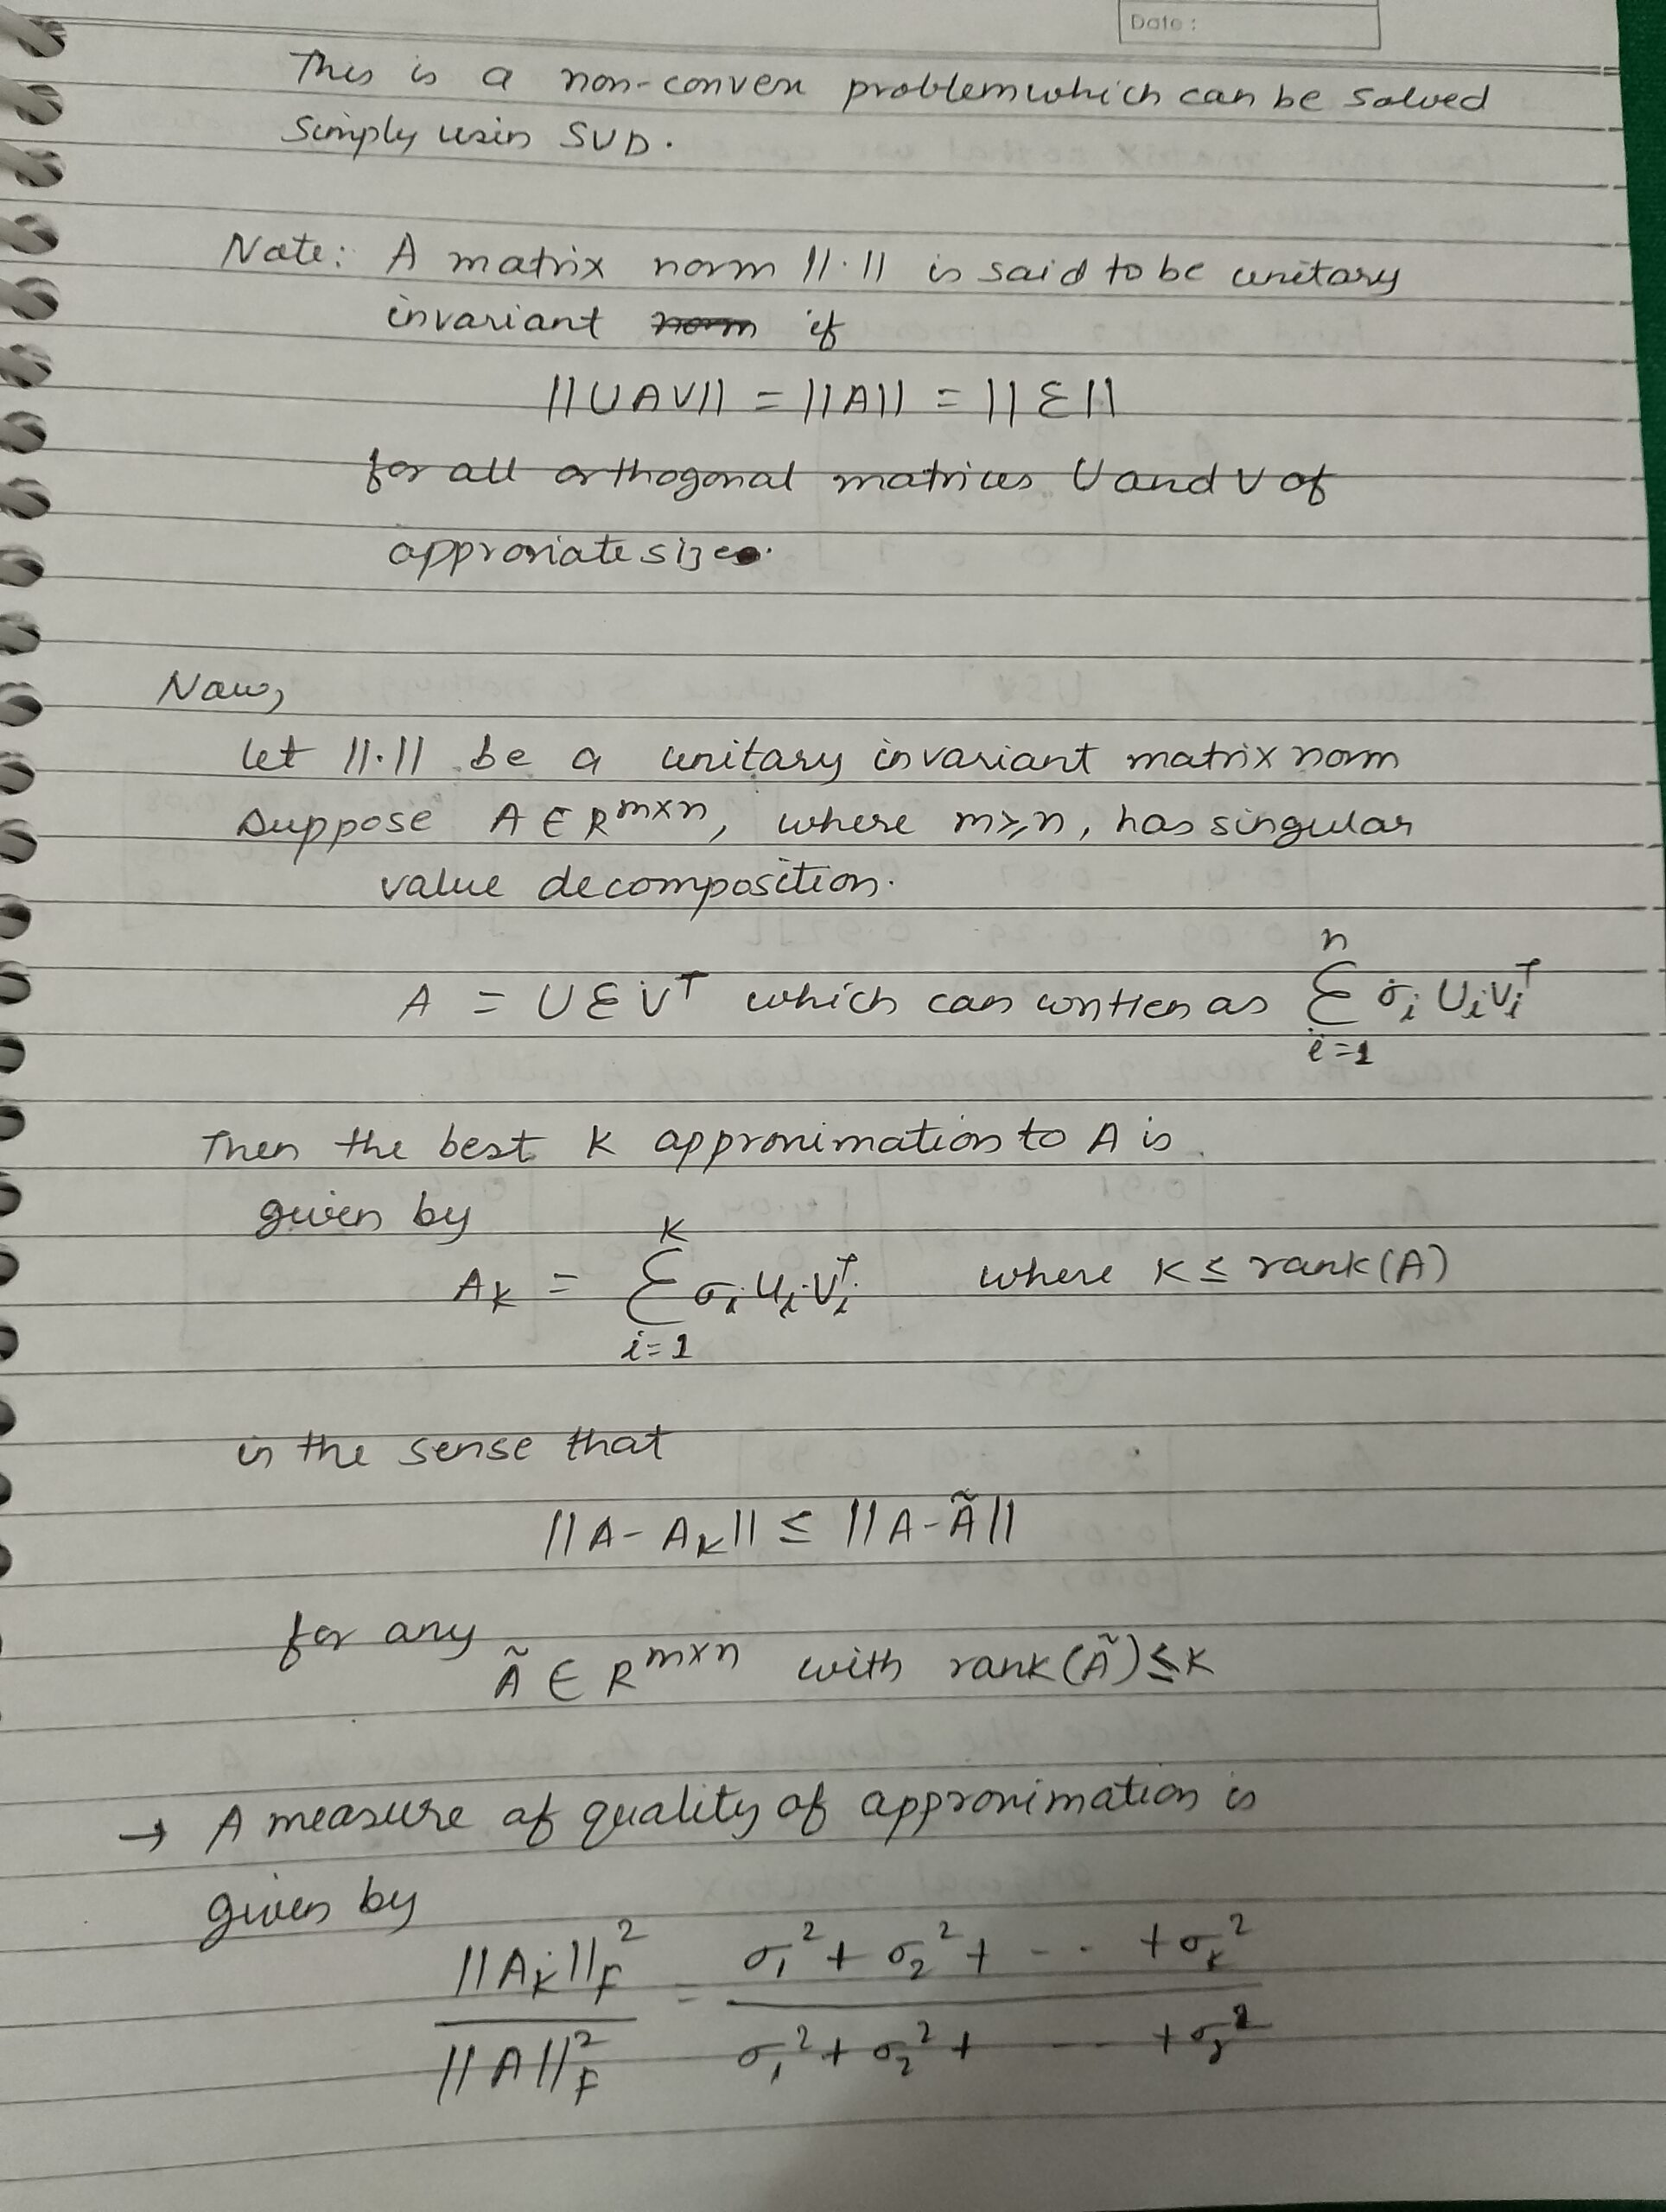 Date :
This is a non-convex problem which can be solved
simply usin SVD.
Note: A matrix norm ||.|| is said to be unitary
invariant ~~norm~~ if
||UAV|| = ||A|| = ||Σ||
for all orthogonal matrices U and V of
approriate size.
Now,
let ||.|| be a unitary invariant matrix norm
Suppose A ∈ R^{m×n}, where m≥n, has singular
value decomposition.
A = UΣV^T which can written as \sum_{i=1}^{n} σ_i U_i V_i^T
Then the best K approximation to A is
given by
A_K = \sum_{i=1}^{K} σ_i U_i V_i^T where K ≤ rank(A)
in the sense that
||A - A_K|| ≤ ||A - Ã||
for any
Ã ∈ R^{m×n} with rank(Ã) ≤ K
→ A measure of quality of approximation is
given by
\frac{||A_K||_F^2}{||A||_F^2} = \frac{σ_1^2 + σ_2^2 + -- + σ_K^2}{σ_1^2 + σ_2^2 + --- + σ_r^2}